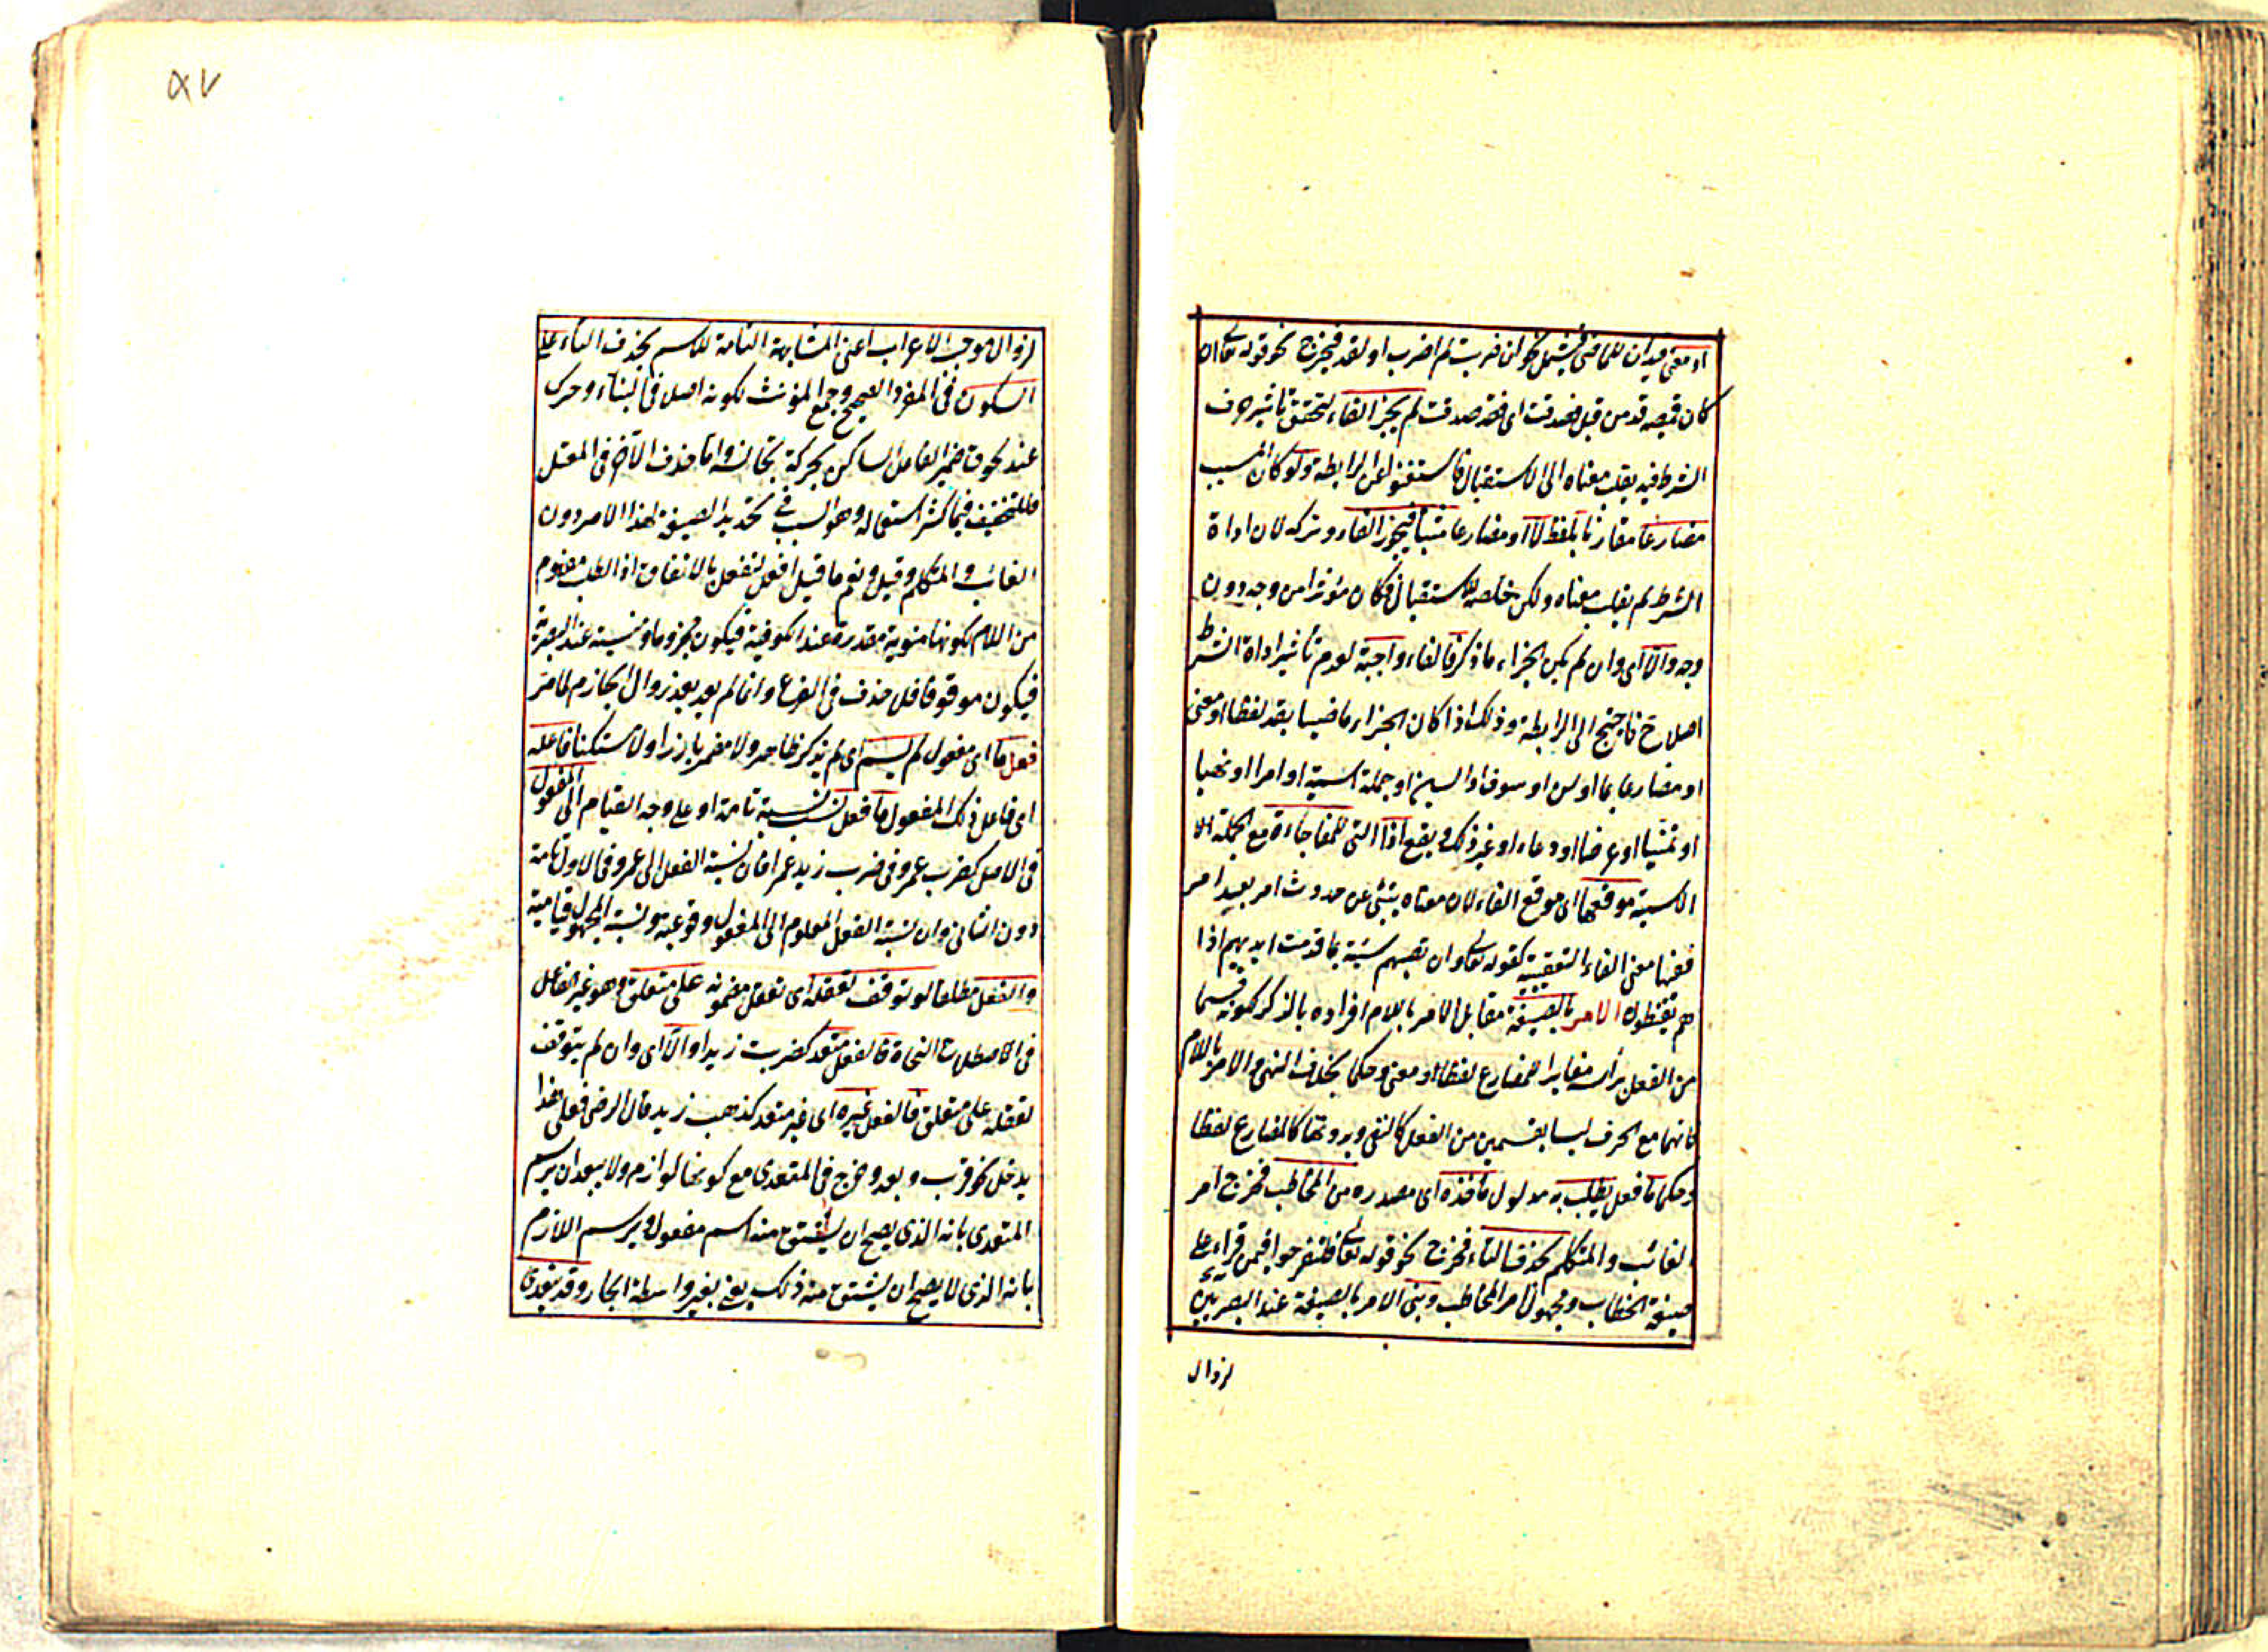 او معنى قيد ان للماضى فيشمل نحو ان ضربت لم اضرب او لقد فيخرج نحو قوله تعالى ان
كان قميصه قد من قبل فصدقت اى فقد صدقت لم يجز الفاء لتحقق تاثير حرف
الشرط فيه بقلب معناه الى الاستقبال فاستغنوا عن الرابطة ولو كان المسبب
مضارعا مقارنا بلفظ لا او مضارعا مثبتا فيجوز الفاء وتركه لان اداة
الشرط لم يقلب معناه ولكن خلصه للاستقبال فكان مؤثرا من وجه دون
وجه والا اى وان لم يكن الجزاء ما ذكر فالفاء واجبة لعدم تأثير اداة الشرط
اصلا ح فاحتيج الى الرابطة وذلك اذا كان الجزاء ماضيا بقد لفظا او معنى
او مضارعا بما او لن او سوف او السين او جملة اسمية او امرا او نهيا
او تمنيا او عرضا او دعاء او غير ذلك ويقع اذا التى للمفاجاءة مع الجملة الا
الاسمية موقعها اى موقع الفاء لان معناه ينبئ عن حدوث امر بعد امر
ففيها معنى الفاء التعقيبية كقوله تعالى وان تصبهم سيئة بما قدمت ايديهم اذا
هم يقنطون الامر بالصيغة مقابل الامر باللام افراده بالذكر لكونه قسما
من الفعل برأسه مغايرا للمضارع لفظا او معنى وحكما بخلاف النهى والامر باللام
فانهما مع الحرف ليسا بقسمين من الفعل كالنفى وبدونها كالمضارع لفظا
وحكما ما فعل يطلب به مدلول مأخذه اى مصدره من المخاطب فخرج امر
الغائب والمتكلم بحذف التاء فخرج نحو قوله تعالى فلتفرحوا فيمن قراء على
صيغة الخطاب ومجهول امر المخاطب وبنى الامر بالصيغة عند البصريين
لزوال
٥٧
لزوال موجب الاعراب اعنى المشابهة التامة للاسم بحذف التاء على
السكون فى المفرد الصحيح وجمع المؤنث لكونه اصل فى البناء وحرك
عند لحوق ضمير الفاعل الساكن بحركة تجانسه واما حذف الآخر فى المعتل
فللتخفيف فيما كثر استعماله وهو السبب فى تحديد الصيغة لهذا الامر دون
الغائب والمتكلم وقيل ونعم ما قيل افعل لتفعل بالاتفاق اذ الطلب مفهوم
من اللام لكونها منوية مقدرة عند الكوفية فيكون مجزوما ومنسية عند البصرية
فيكون موقوفا فلن حذف فى الفرع وانما لم يعد بعد زوال الجازم لما مر
فعل ما اى مفعول لم يسم اى لم يذكر ظاهر ولا مضمر بارزا ولا مستكنا فاعله
اى فاعل ذلك المفعول ما فعل نسب نسبة تامة او على وجه القيام الى المفعول
فى الاصل كضرب عمرو فى ضرب زيد عمرا فان نسبة الفعل الى عمرو فى الاول تامة
دون الثانى وان نسبة الفعل المعلوم الى المفعول وقوعية ونسبة المجهول قيامية
والفعل مطلقا لو توقف تعقله اى تعقل مضمونه على متعلق وهو غير الفاعل
فى اصطلاح النحاة فالفعل متعد كضرب زيدا والا اى وان لم يتوقف
تعقله على متعلق فالفعل غيره اى غير متعد كذهب زيد قال الرضى فعلى هذا
يدخل نحو قرب وبعد وخرج فى المتعدى مع كونها لوازم ولا يبعد ان يرسم
المتعدى بانه الذى يصح ان يشتق منه اسم مفعول ويرسم اللازم
بانه الذى لا يصح ان يشتق منه ذلك يعنى بغير واسطة الجار وقد يتعدى